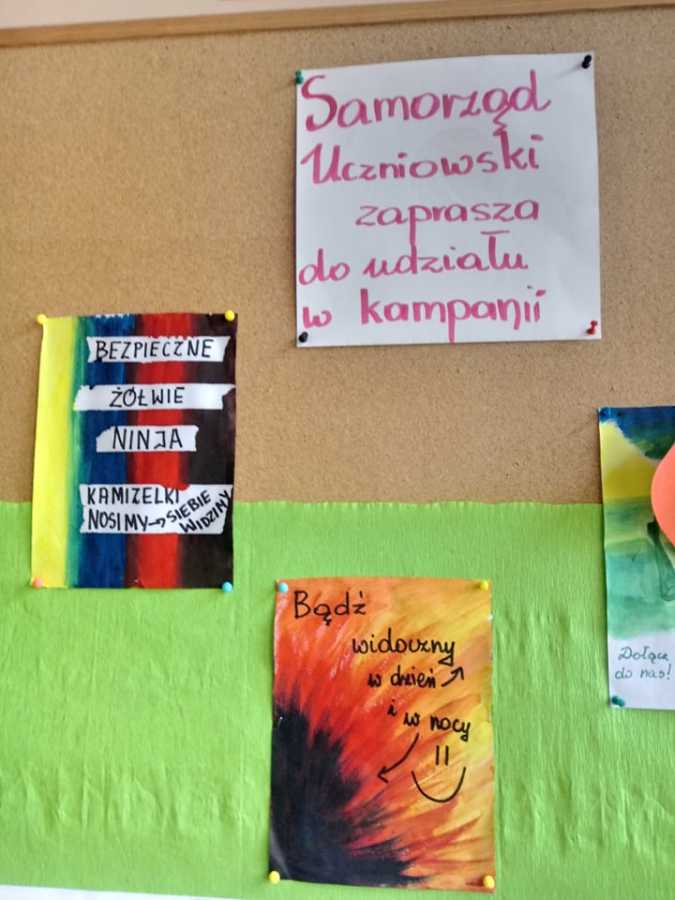 Samorząd
Uczniowski
zaprasza
do udziału
w kampanii
BEZPIECZNE
ŻÓŁWIE
NINJA
KAMIZELKI
NOSIMY → SIEBIE
WIDZIMY
Bądź
widoczny
w dzień
i w nocy
Dołącz
do nas!